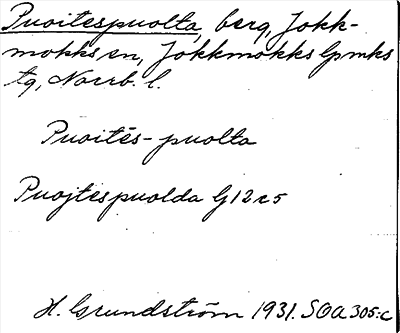 Puoitespuolta, berg, Jokk-
mokks sn, Jokkmokks lpmks
tg, Norrb. l.
Puoitēs-puolta
Puojtespuolda G12c5
H. Grundström 1931. SOA 305:c